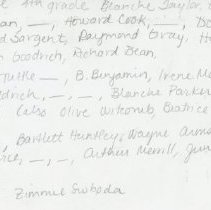 4th grade Blanche Taylor,
an, —, Howard Cook, —, De
d Sargent, Raymond Gray, H
n Goodrich, Richard Dean,
Tuttle —, B. Benjamin, Irene M
drich, —, —, Blanche Parker
(also Olive Witcomb, Beatrice
, Bartlett Huntley, Wayne
ice, —, —, Arthur Merrill, Jun
Zimmie Swoboda